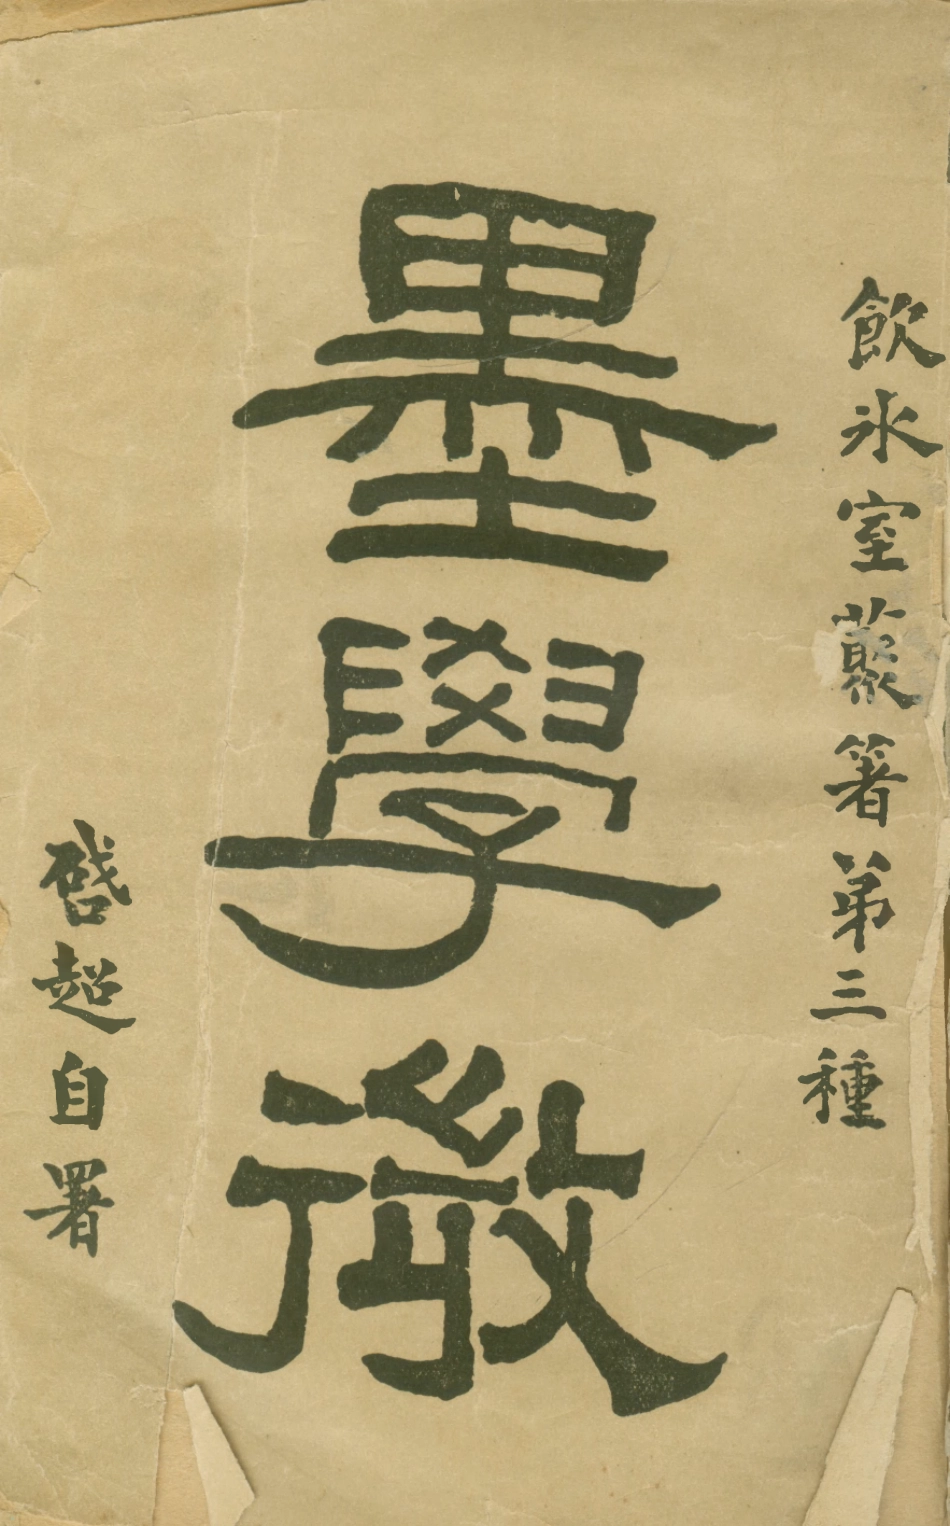 飲氷室藂箸第三種
墨學微
啓超自署